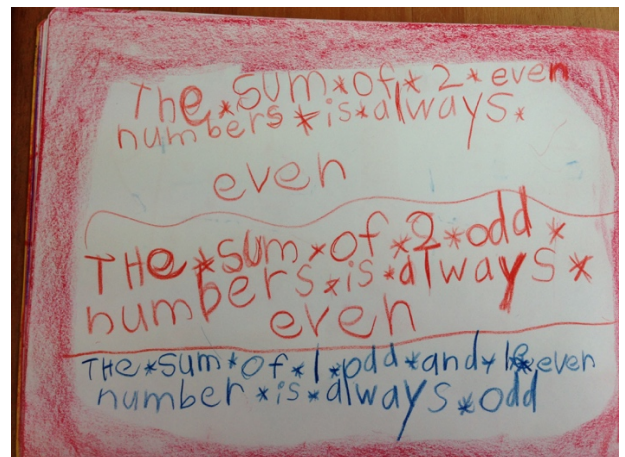 The*sum*of*2*even
numbers*is*always*
even
THe*sum*of*2*odd*
numbers*is*always*
even
THe*sum*of*1*odd*and*1*even
number*is*always*odd